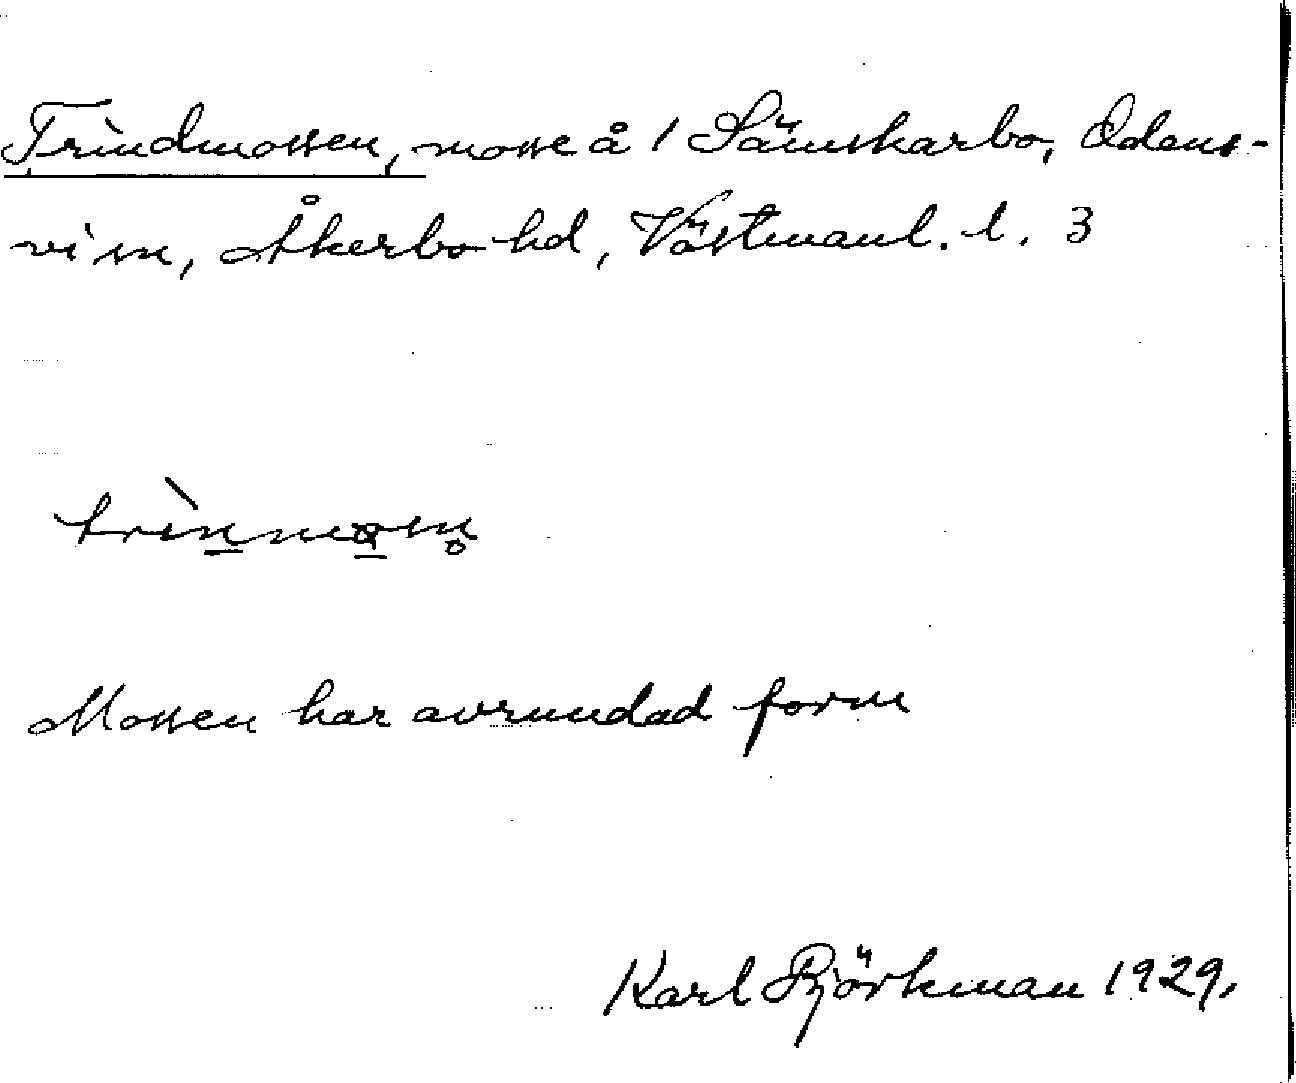 Trindmossen, mosse å 1 Sämskarbo, Odens-
vi sn, Åkerbo hd, Västmanl. l. 3
Mossen har avrundad form
Karl Björkman 1929.